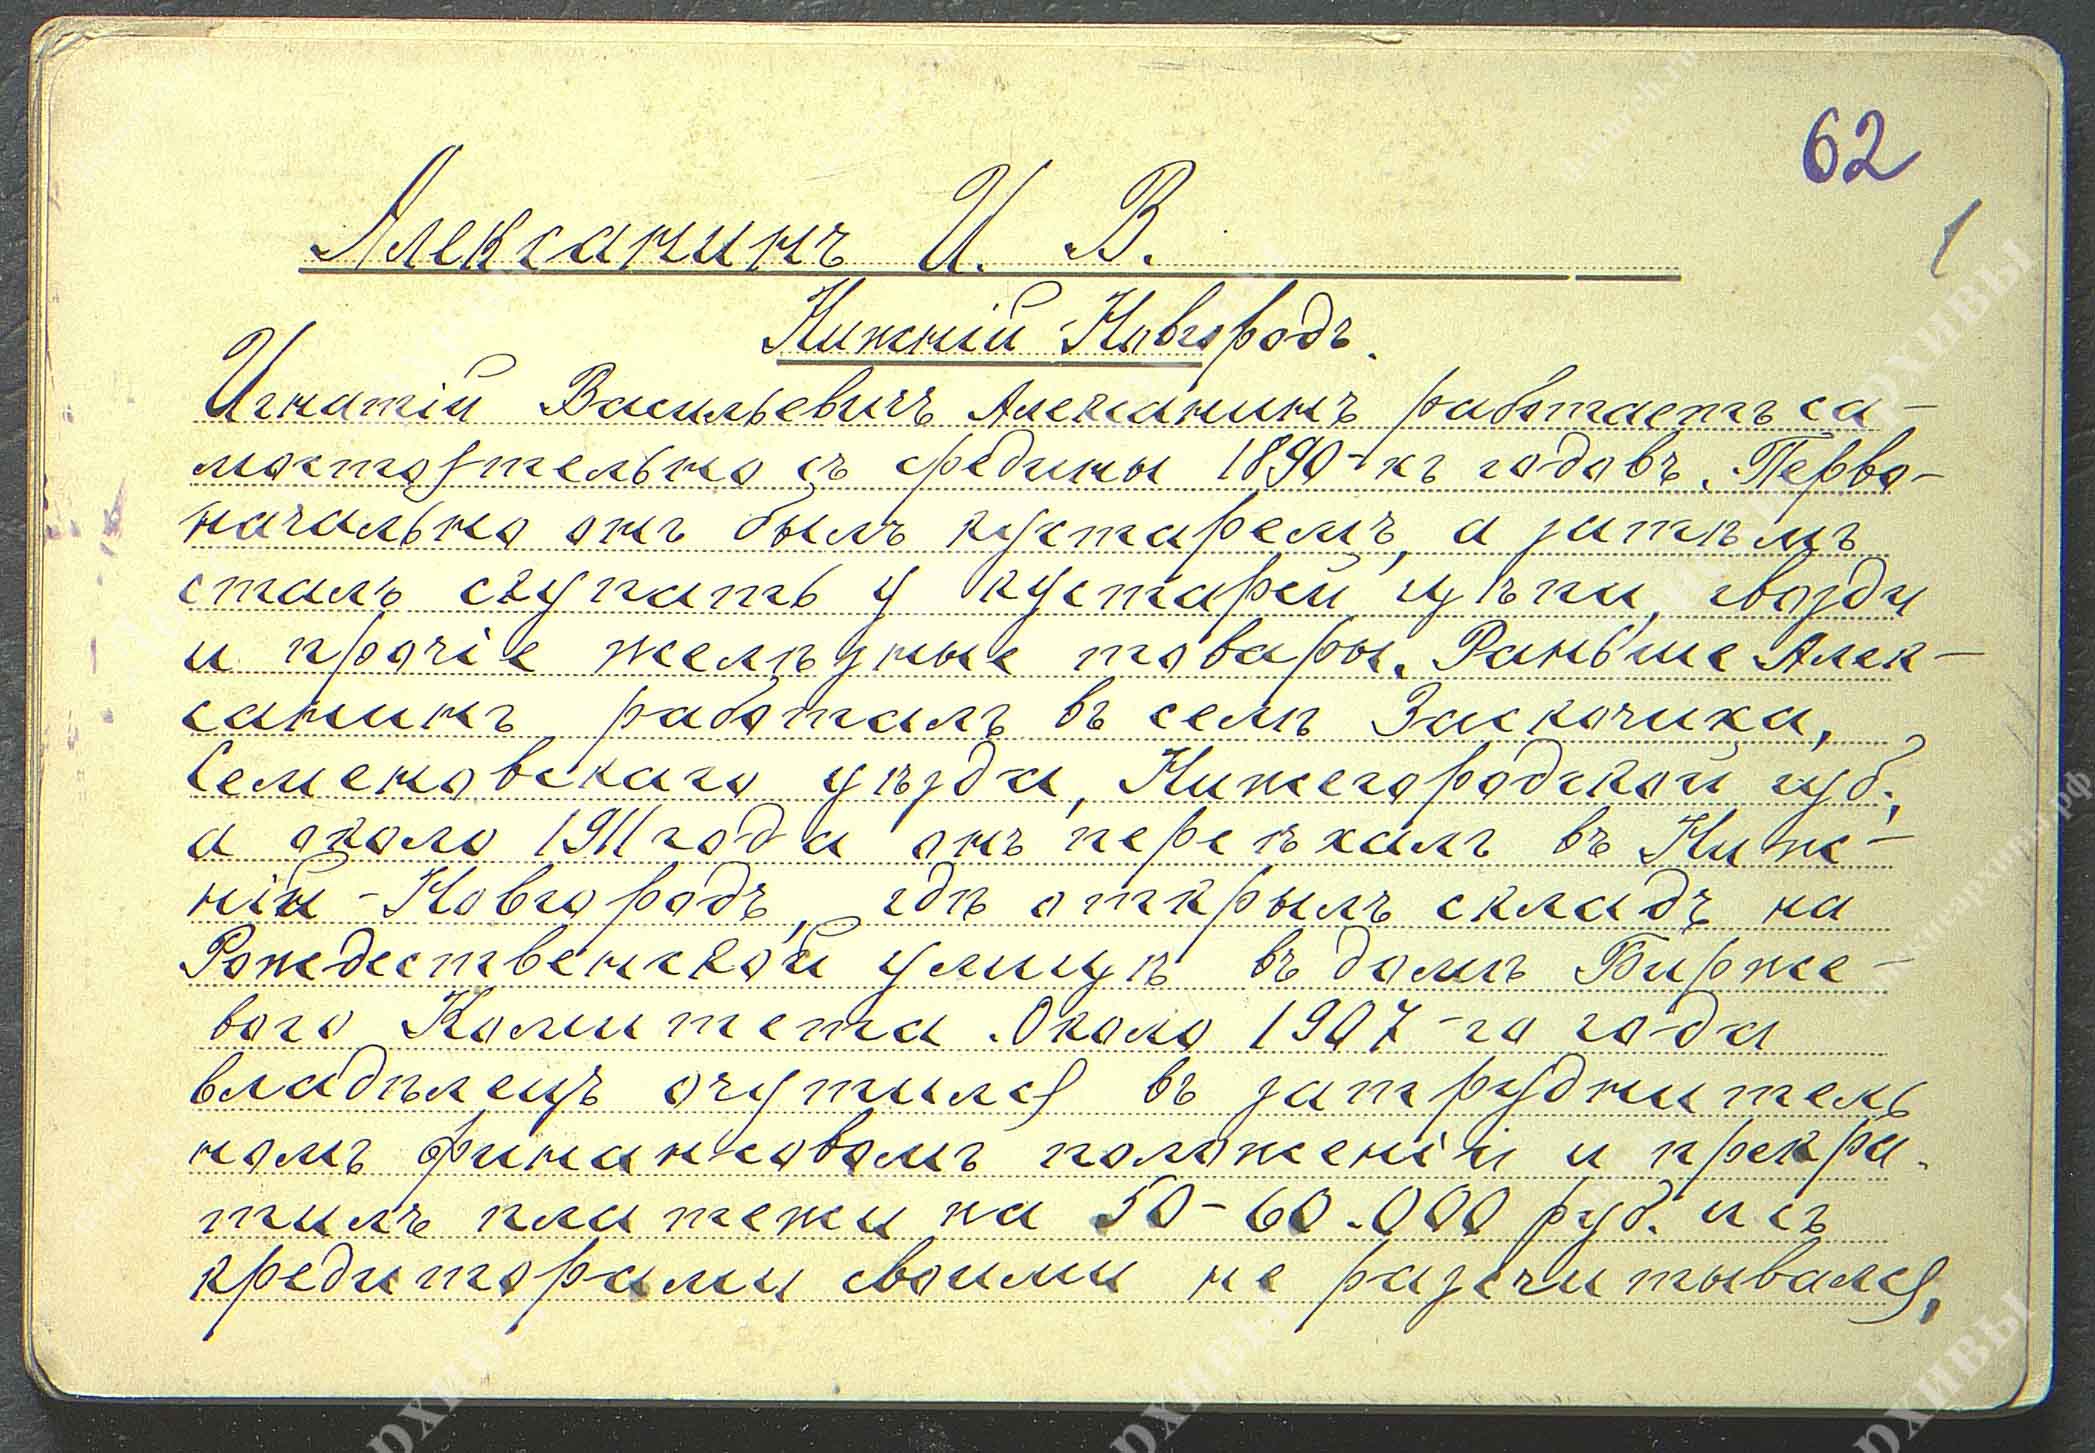 62
1
Алексанинъ И. В.
Нижній Новгородъ.
Игнатій Васильевичъ Алексанинъ работаетъ са-
мостоятельно съ средины 1890-хъ годовъ. Перво-
начально онъ былъ кустаремъ, а затѣмъ
сталъ скупать у кустарей цѣпи, гвозди
и прочіе желѣзные товары. Раньше Алек-
санинъ работалъ въ селѣ Заскочиха,
Семеновскаго уѣзда, Нижегородской губ.,
а около 1911 года онъ переѣхалъ въ Ниж-
ній-Новгородъ, гдѣ открылъ складъ на
Рождественской улицѣ въ домѣ Бирже-
вого Комитета. Около 1907-го года
владѣлецъ очутился въ затруднитель
номъ финансовомъ положеніи и прекра-
тилъ платежи на 50-60.000 руб. и съ
кредиторами своими не разсчитывался,